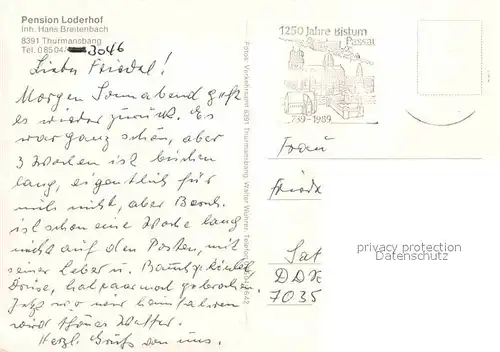 Pension Loderhof
Inh. Hans Breitenbach
8391 Thurmansbang
Tel. 08504/ 3046
Liebe Friedel!
Morgen Sonnabend geht
es wieder zurück. Es
war ganz schön, aber
3 Wochen ist bischen
lang, eigentlich für
mich nicht, aber Bernh.
ist schon eine Woche lang
nicht auf den Posten, mit
seiner Leber u.
Jetzt wo wir heimfahren
wird schönes Wetter.
Herzl. Grüße von uns.
Fotos: Verkehrsamt 8391 Thurmansbang, Walter Wührer, Telefon
1250 Jahre Bistum
Passau
739-1989
Frau
Frieda
DDR
7035
privacy protection
Datenschutz